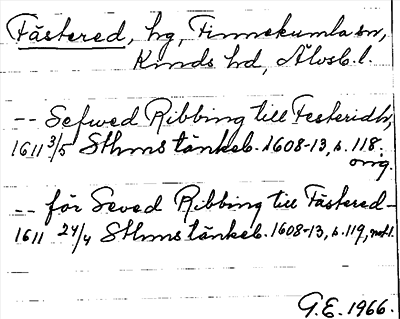 Fästered, hg, Finnekumla sn,
Kinds hd, Älvsb. l.
-- Sefwed Ribbing till Festeridh,
1611 3/5 Sthms tänkeb. 1608-13, s. 118.
orig.
-- för Seved Ribbing till Fästered-
1611 24/4 Sthms tänkeb. 1608-13, s. 119,
G.E. 1966.